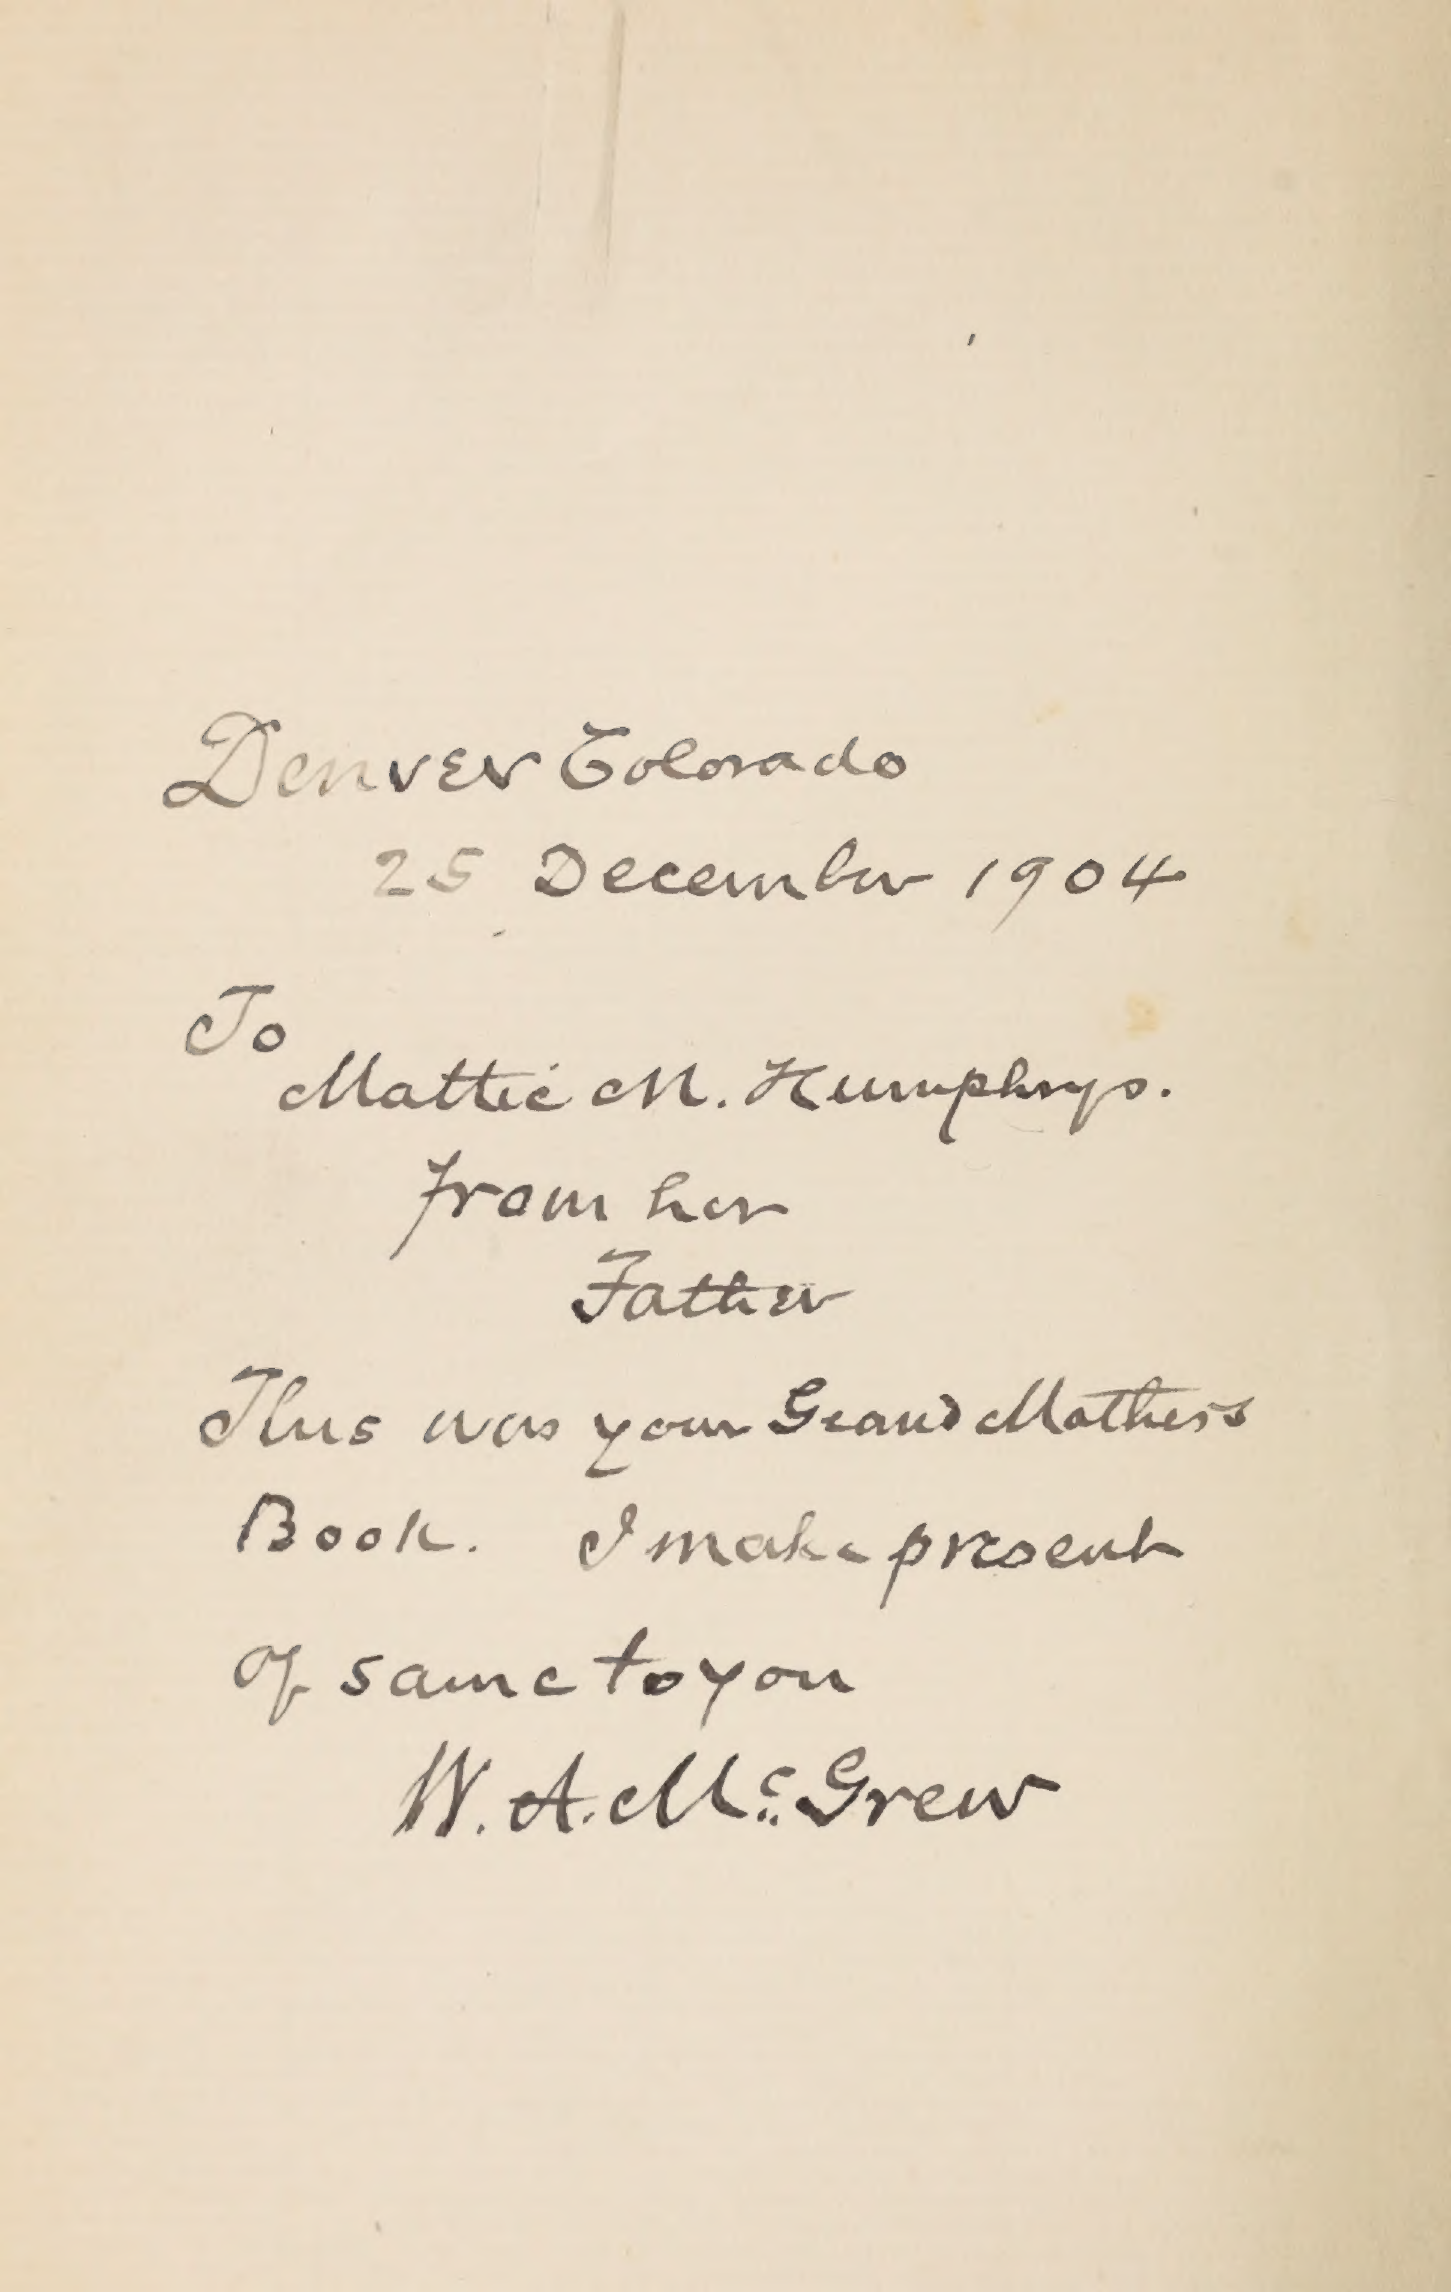 Denver Colorado
25 December 1904
To
Mattie M. Humphrys.
from her
Father
This was your Grand Mothers
Book. I make present
of same to you
W. A. Mc. Grew